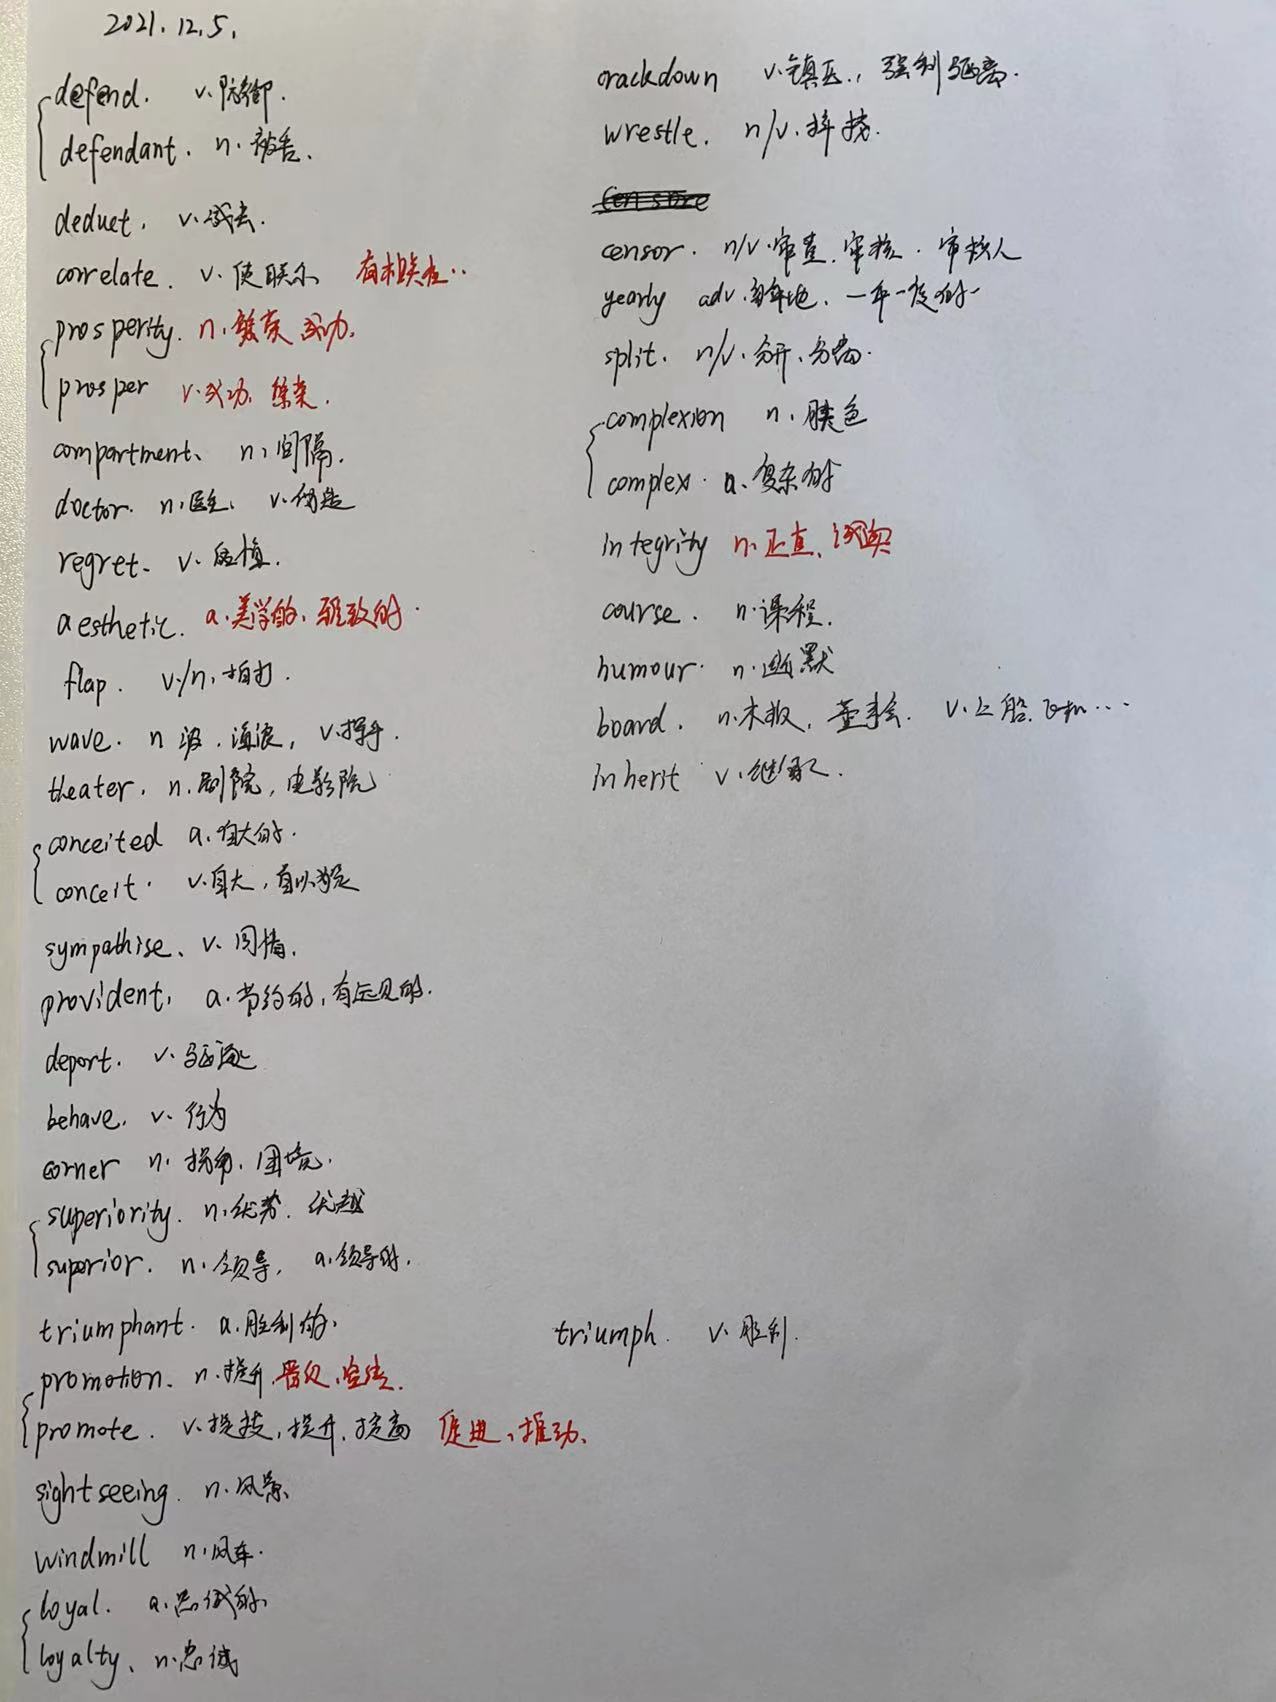 2021.12.5.
defend. v.防御.
defendant. n.被告.
deduct. v.减去.
correlate. v.使联系 有相关性..
prosperity. n.繁荣 成功.
prosper v.成功.繁荣.
compartment、 n.间隔.
doctor. n.医生. v.伪造
regret. v.后悔.
aesthetic. a.美学的.雅致的.
flap. v./n.拍打.
wave. n 波.海浪, v.挥手.
theater. n.剧院,电影院
conceited a.自大的.
conceit. v.自大,自以为是
sympathise、v.同情.
provident. a.节约的,有远见的.
deport. v.驱逐
behave. v.行为
corner n.拐角.困境.
superiority. n.优势.优越
superior. n.领导, a.领导的.
triumphant. a.胜利的.
promotion. n.提升.晋级.宣传.
promote. v.提拔,提升.提高 促进、推动、
sightseeing. n.风景
windmill n.风车.
loyal. a.忠诚的
loyalty、n.忠诚
crackdown v.镇压., 强制驱离.
wrestle. n/v.摔揉.
censor. n/v.审查.审核.审核人
yearly adv.每年地.一年一度的
split. n/v.分开.分离.
complexion n.肤色
complex. a.复杂的
integrity n.正直、诚实
course. n.课程.
humour. n.幽默
board. n.木板,董事会. v.上船.飞机...
inherit v.继承.
triumph. v.胜利.